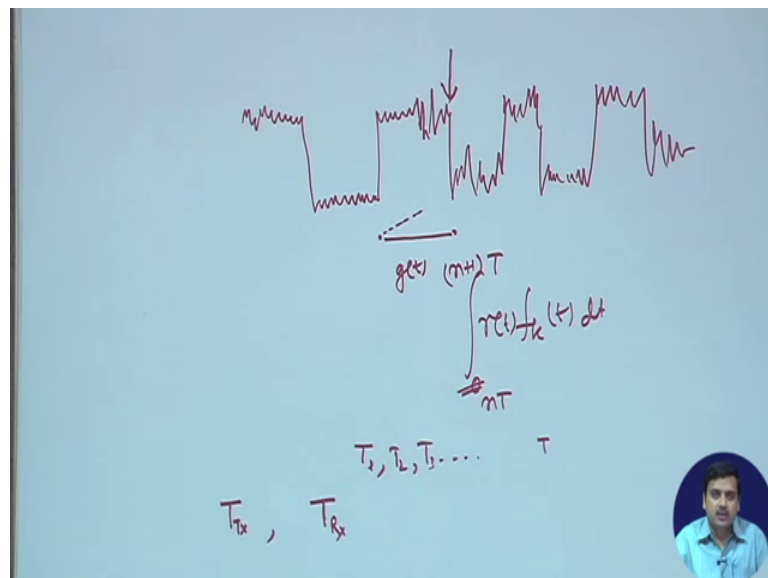 g(t) (n+1)T
∫ r(t) f_k(t) dt
nT
T_1, T_2, T_3 .... T
T_Tx , T_Rx